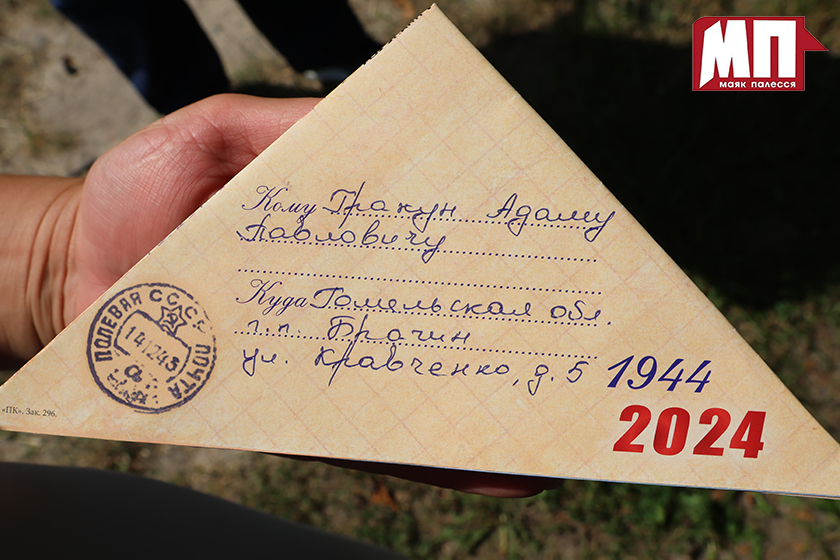 МП
МАЯК ПАЛЕССЯ
Кому Гракун Адаму
Павловичу
Куда Гомельская обл.
г.п. Брагин
ул. Кравченко, д. 5
ПОЛЕВАЯ ПОЧТА СССР
1944
2024
«ПК». Зак. 296.